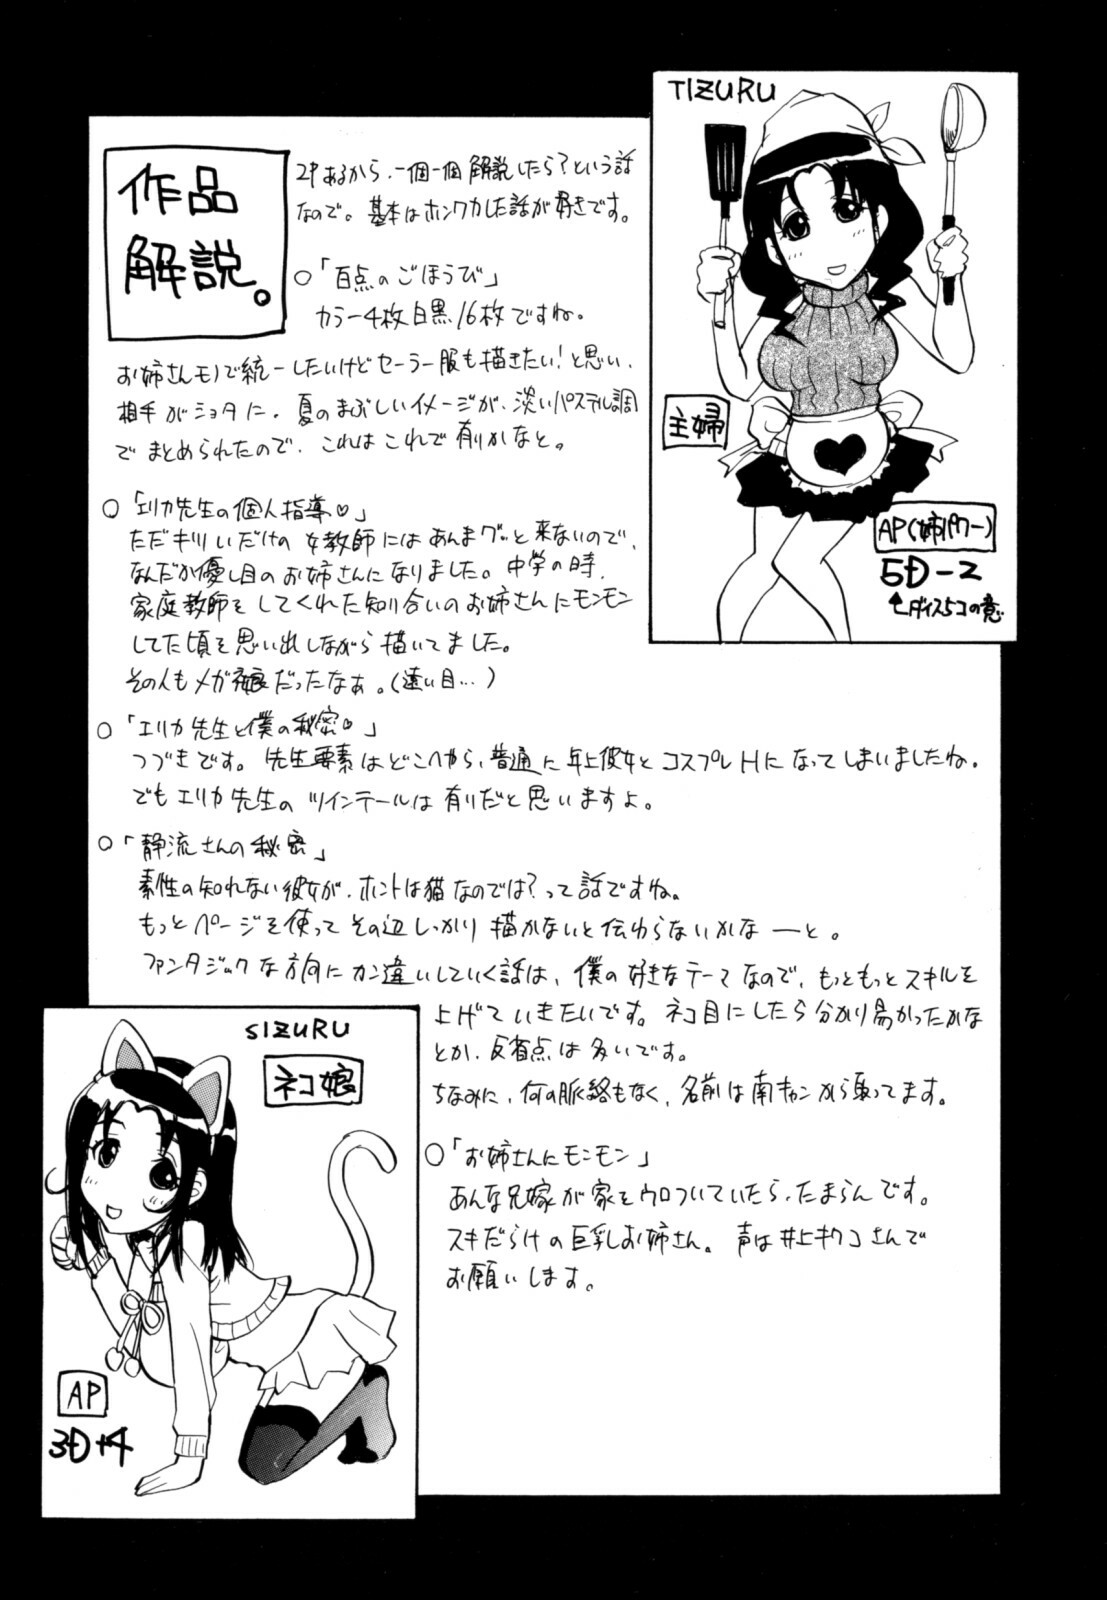 作品
解説。
2Pあるから、一個一個解説したら?という話
なので。基本はホンワカした話が好きです。
○「百点のごほうび」
カラー4枚白黒16枚ですね。
お姉さんモノで統一したいけどセーラー服も描きたい!と思い、
相手がショタに。夏のまぶしいイメージが、淡いパステル調
でまとめられたので、これはこれで有りかなと。
○「エリカ先生の個人指導♡」
ただキリいだけの女教師にはあんまグッと来ないので、
なんだか優し目のお姉さんになりました。中学の時、
家庭教師をしてくれた知り合いのお姉さんにモンモン
してた頃を思い出しながら描いてました。
その人もメガネ娘だったなぁ。(遠い目…)
○「エリカ先生と僕の秘密♡」
つづきです。先生要素はどこへやら、普通に年上彼女とコスプレHになってしまいましたね。
でもエリカ先生のツインテールは有りだと思いますよ。
○「静流さんの秘密」
素性の知れない彼女が、ホントは猫なのでは?って話ですね。
もっとページを使ってその辺しっかり描かないと伝わらないかなーと。
ファンタジックな方向にカン違いしていく話は、僕の好きなテーマなので、もっともっとスキルを
上げていきたいです。ネコ目にしたら分かり易かったかな
とか、反省点は多いです。
ちなみに、何の脈絡もなく、名前は南キャンから取ってます。
○「お姉さんにモンモン」
あんな兄嫁が家をウロついていたら、たまらんです。
スキだらけの巨乳お姉さん。声は井上キクコさんで
お願いします。
TIZURU
主婦
AP(姉パワー)
5D-2
↑ダイス5コの意
SIZURU
ネコ娘
AP
3D+4